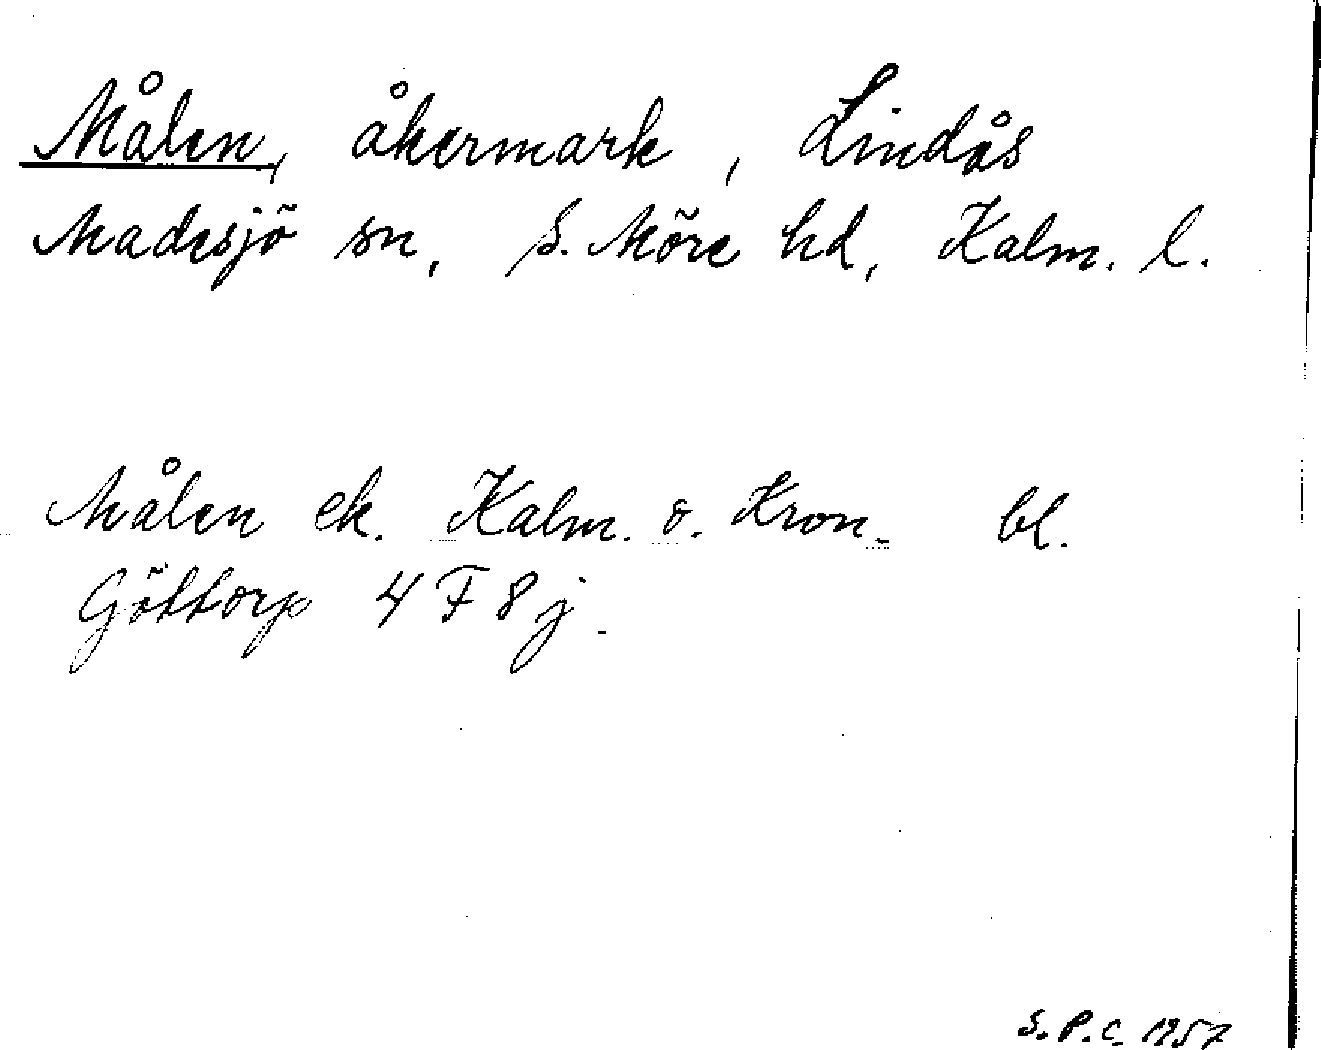 Målen, åkermark, Lindås
Madesjö sn, S. Möre hd, Kalm. l.
Målen ek. Kalm. o. Kron. bl.
Göttorp 4 F 8 j.
S.P.C. 1957